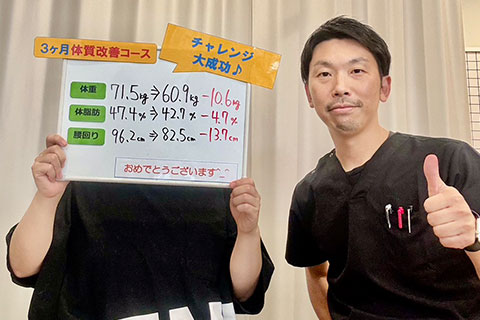 3ヶ月体質改善コース
チャレンジ
大成功♪
体重 71.5kg⇒60.9kg -10.6kg
体脂肪 47.4%⇒42.7% -4.7%
腰回り 96.2cm⇒82.5cm -13.7cm
おめでとうございます^_^